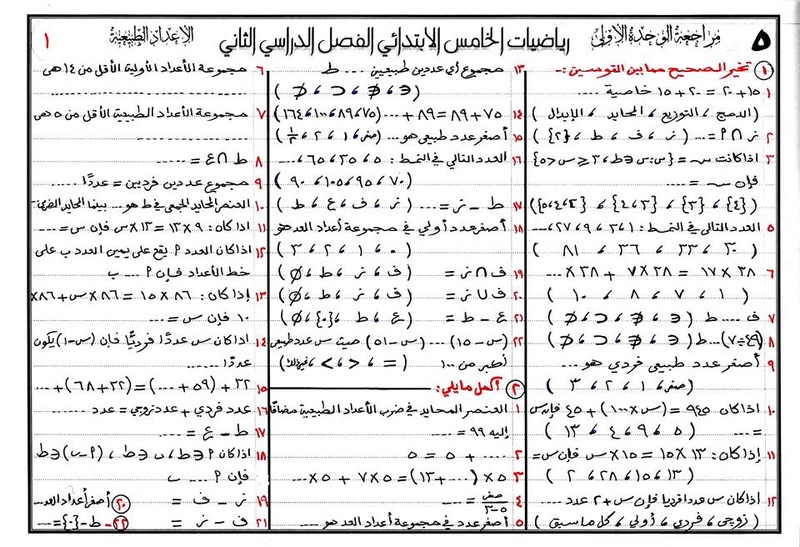 ٥ مراجعة الوحدة الأولى رياضيات الخامس الابتدائي الفصل الدراسي الثاني الأعداد الطبيعية ١
١ تخير الصحيح مما بين القوسين :-
١ ١٥ + ٢٠ = ٢٠ + ١٥ خاصية ....
( الدمج ، التوزيع ، المحايد ، الإبدال )
٢ ز ∩ P = ... ( ز ، ف ، ط ، {٢} )
٣ إذا كانت س = {س : س ∈ ط ، ٢ ≤ س < ٥}
فإن س = ....
( {٤} ، {٣} ، {٣،٤} ، {٢،٤،٥} )
٥ العدد التالي في النمط : ١ ، ٣ ، ٩ ، ٢٧ ، ...
( ٣٠ ، ٣٣ ، ٣٦ ، ٨١ )
٦ ٢٨ × ١٧ = ٢٨ × ٧ + ٢٨ × ...
( ١ ، ٧ ، ٨ ، ١٠ )
٧ ف .... ط ( ∈ ، ∉ ، ⊂ ، ⊄ )
٨ (٤٩ ÷ ٧) ... ط ( ∈ ، ∉ ، ⊂ ، ⊄ )
٩ أصغر عدد طبيعي فردي هو ...
( صفر ، ١ ، ٢ ، ٣ )
١٠ إذا كان ٩٤٥ = (س × ١٠٠) + ٤٥ فإن س
= .... ( ٥ ، ٩ ، ٤ ، ١٣ )
١١ إذا كان : ١٣ × ١٥ = ١٥ × س فإن س =
( ١٣ ، ١٥ ، ٢٨ ، ٢ )
١٢ إذا كان س عددا فرديا فإن س + ٢ عدد ....
( زوجي ، فردي ، أولي ، كل ما سبق )
١٣ مجموع أي عددين طبيعيين .... ط
( ∈ ، ∉ ، ⊂ ، ⊄ )
١٤ ٧٥ + ٨٩ = ٨٩ + ... (٧٥ ، ٨٩ ، ١٠٠ ، ١٦٤)
١٥ أصغر عدد طبيعي هو ... ( صفر ، ١ ، ٢ ،
١٦ العدد التالي في النمط : ٥ ، ٣٥ ، ٦٥ ، ....
( ٧٠ ، ٩٥ ، ١٠٥ ، ٩٠ )
١٧ ط - ز = .... ( ز ، ف ، ع ، ط )
١٨ أصغر عدد أولي في مجموعة أعداد العد هو
( ٠ ، ١ ، ٢ ، ٣ )
١٩ ف ∩ ز = ( ف ، ز ، ط ، Ø )
٢٠ ف ∪ ز = ( ف ، ز ، ط ، Ø )
٢١ ع - ط = ( ع ، ط ، {٠} ، Ø )
٢٢ (س - ١٥) ... (س - ٥١) حيث س عدد طبيعي
أكبر من ١٠٠ ( = ، < ، > ، غير ذلك )
٢ أكمل ما يلي :
١ العنصر المحايد في ضرب الأعداد الطبيعية مضافًا
إليه ٩٩ = ....
٢ .... + ٥ = ٥
٣ ٥ × (.... + ١٢) = ٥ × ٧ + ٥ × ...
٤ صفر / ٣ - ٥ = ....
٥ أصغر عدد في مجموعة أعداد العد هو ....
٦ مجموعة الأعداد الأولية الأقل من ١٤ هى
٧ مجموعة الأعداد الطبيعية الأقل من ٥ هى
٨ ط ∩ ع = ....
٩ مجموع عددين فرديين = عددًا ....
١٠ العنصر المحايد الجمعي في ط هو ... بينما المحايد الضربي ...
١١ إذا كان : ٩ × ١٣ = ١٣ × س فإن س = ....
١٢ إذا كان العدد P يقع على يمين العدد ب على
خط الأعداد فإن P .... ب
١٣ إذا كان : ٨٦ × ١٥ = ٨٦ × س + ٨٦ ×
١٠ فإن س = ....
١٤ إذا كان س عددًا فرديًّا فإن (س - ١) يكون
عددًا ....
١٥ ٣٢ + (٥٩ + ...) = (٣٢ + ٦٨) + ...
١٦ عدد فردي + عدد زوجي = عدد ....
١٧ ط - ع = ....
١٨ إذا كان P ∈ ط ، ب ∈ ط ، (P - ب) ∈ ط
فإن P .... ب
١٩ ز - ف = ٢٠ أصغر أعداد العد ...
٢١ ف - ز = ٢٢ ط - {٠} = ...